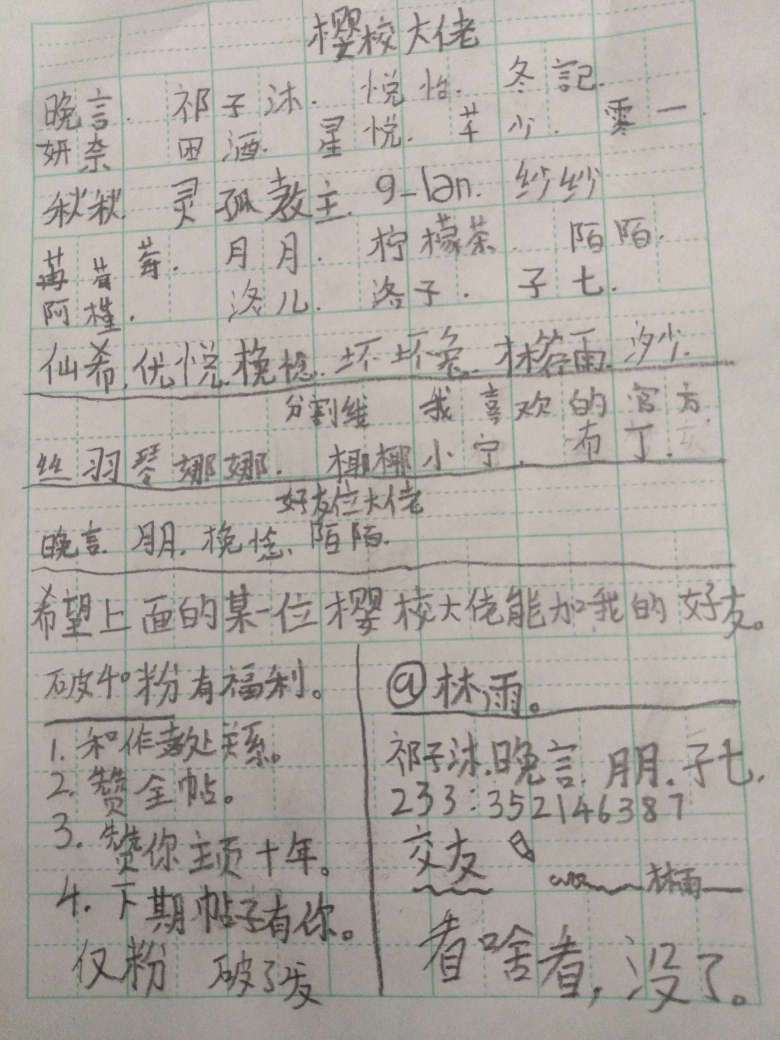 樱校大佬
晚言. 祁子沐. 悦怡. 冬記.
妍奈 田酒. 星悦. 芊少. 零一
秋秋. 灵孤教主. 9_lan. 纱纱
莓莓. 月月. 柠檬茶. 陌陌.
阿槿. 洛儿. 洛子. 子七.
仙希. 优悦. 挽棯. 坏坏兔. 林若雨. 汐少.
分割维 我喜欢的官方
丝羽琴娜娜. 椰椰小宁. 布丁.
好友位大佬
晚言. 月月. 挽棯. 陌陌.
希望上面的某一位樱校大佬能加我的好友。
破40粉有福利。
1. 和作者处关系。
2. 赞全帖。
3. 赞你主页十年。
4. 下期帖子有你。
仅粉 破了发
@林雨。
祁子沐. 晚言. 月月. 子七.
233:352146387
交友
林雨
看啥看,没了。